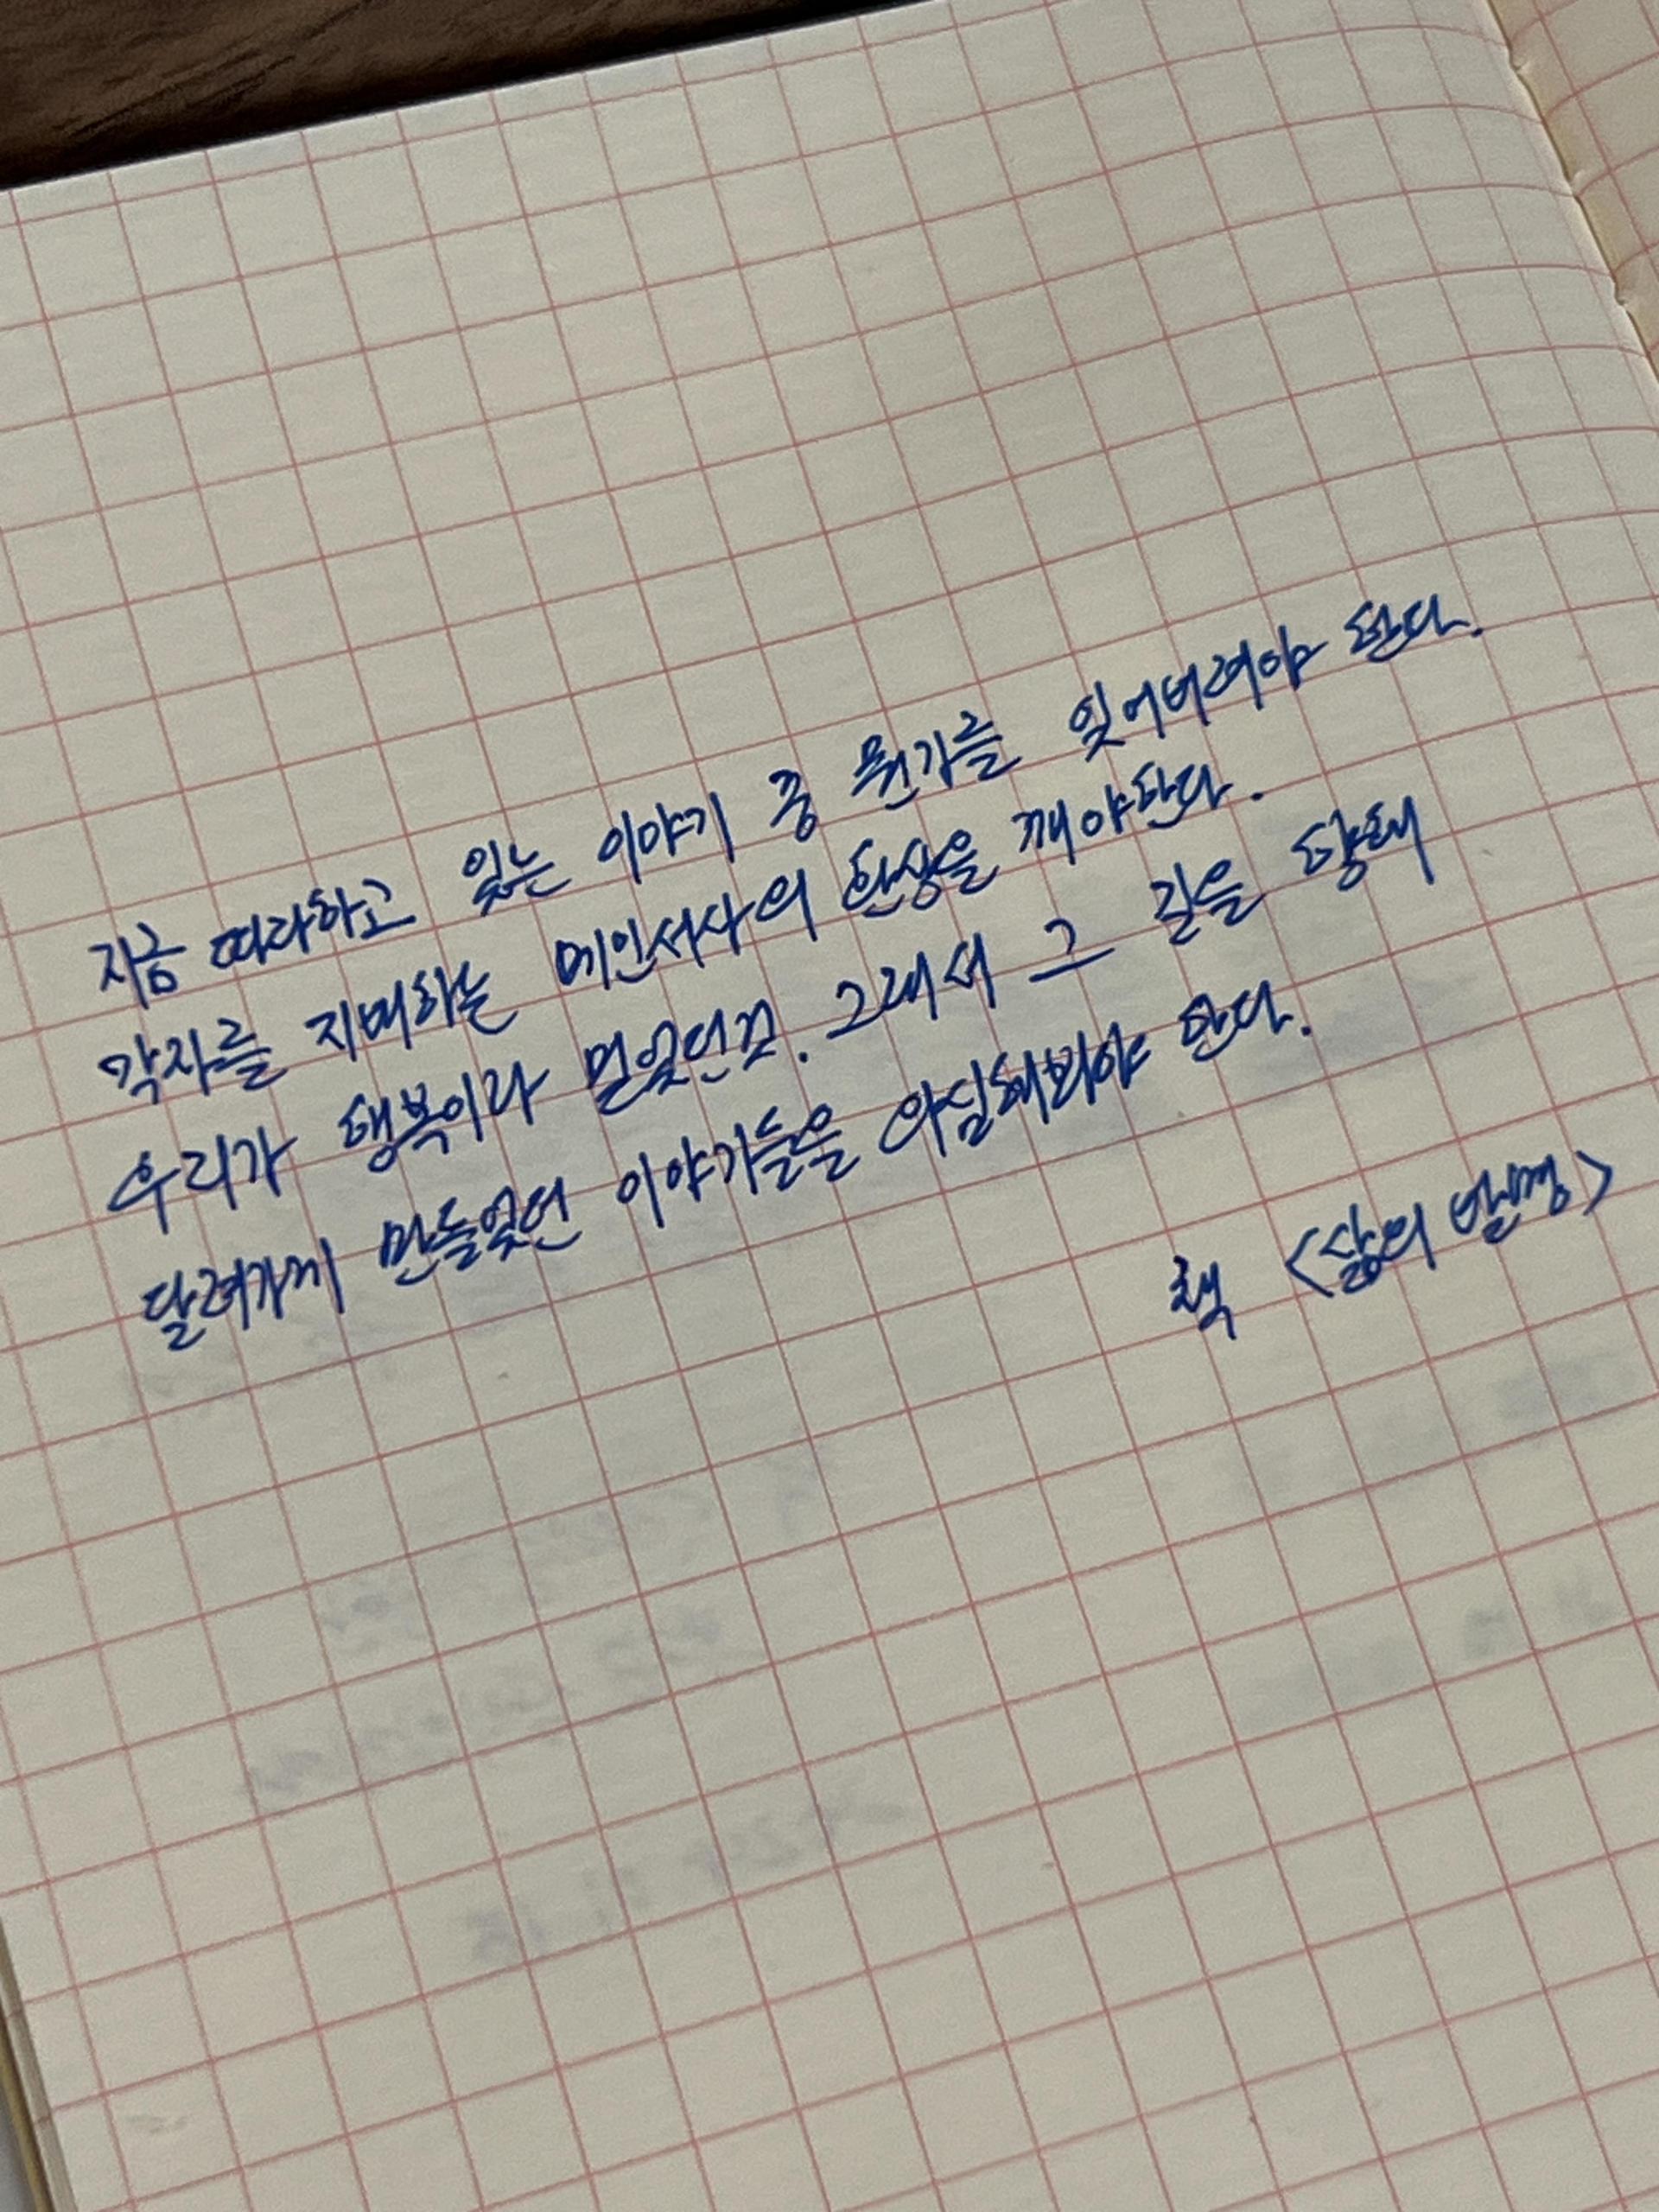 지금 따라하고 있는 이야기 중 뭔가를 잊어버려야 한다.
각자를 지배하는 메인서사의 환상을 깨야한다.
우리가 행복이라 믿었던것. 그래서 그 길을 향해
달려가게 만들었던 이야기들을 의심해봐야 한다.
책 <삶의 발명>